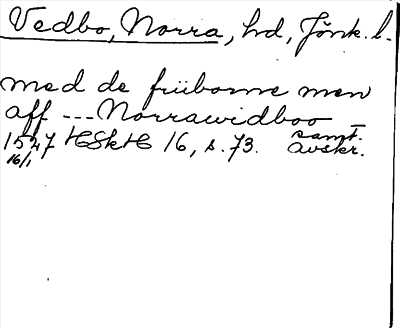 Vedbo, Norra, hd, Jönk. l.
med de friiborne men
aff --- Norrawidboo
1527 HSkH 16, s. 73. samt. avskr.
16/1